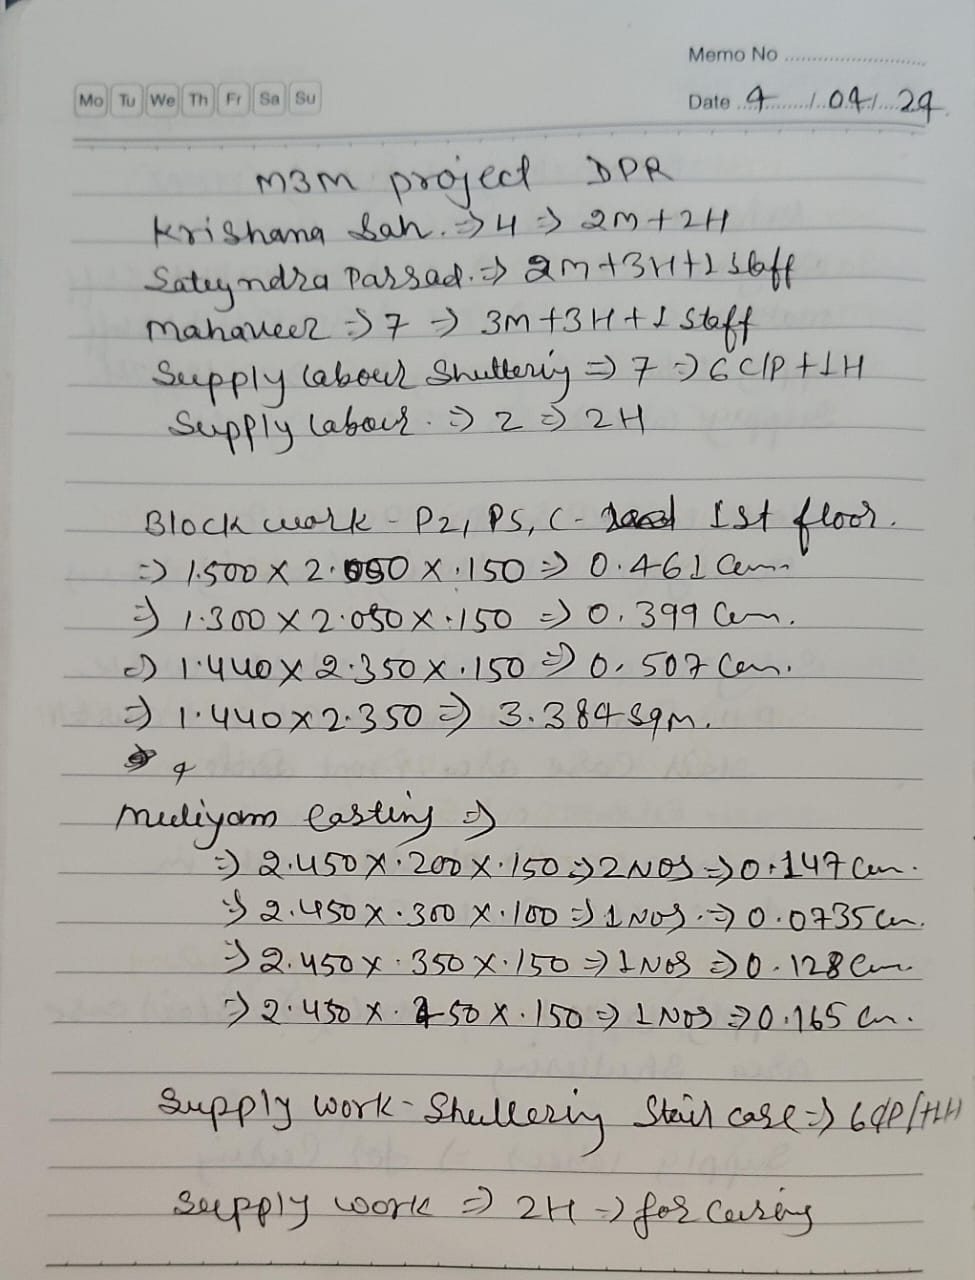 Memo No
Mo Tu We Th Fr Sa Su
Date 4/04/24
M3M project DPR
Krishana Sah. => 4 => 2M+2H
Sateyndra Parsad. => 2M+3H+1 Staff
Mahaveer => 7 => 3M+3H+1 Staff
Supply labour Shuttering => 7 => 6 C/P +1H
Supply labour. => 2 => 2H
Block work - P2, P5, C- 1st floor.
=> 1.500 x 2.050 x .150 => 0.461 Cum
=> 1.300 x 2.050 x .150 => 0.399 Cum.
=> 1.440 x 2.350 x .150 => 0.507 Cum.
=> 1.440 x 2.350 => 3.384 sqm.
Mediyam Casting =>
=> 2.450 x .200 x .150 => 2 Nos => 0.147 Cum.
=> 2.450 x .300 x .100 => 1 Nos. => 0.0735 Cum.
=> 2.450 x .350 x .150 => 1 Nos => 0.128 Cum
=> 2.450 x .450 x .150 => 1 Nos => 0.165 Cum.
Supply work - Shuttering Stair case => 6 C/P/+1H
Supply work => 2H => for Curing